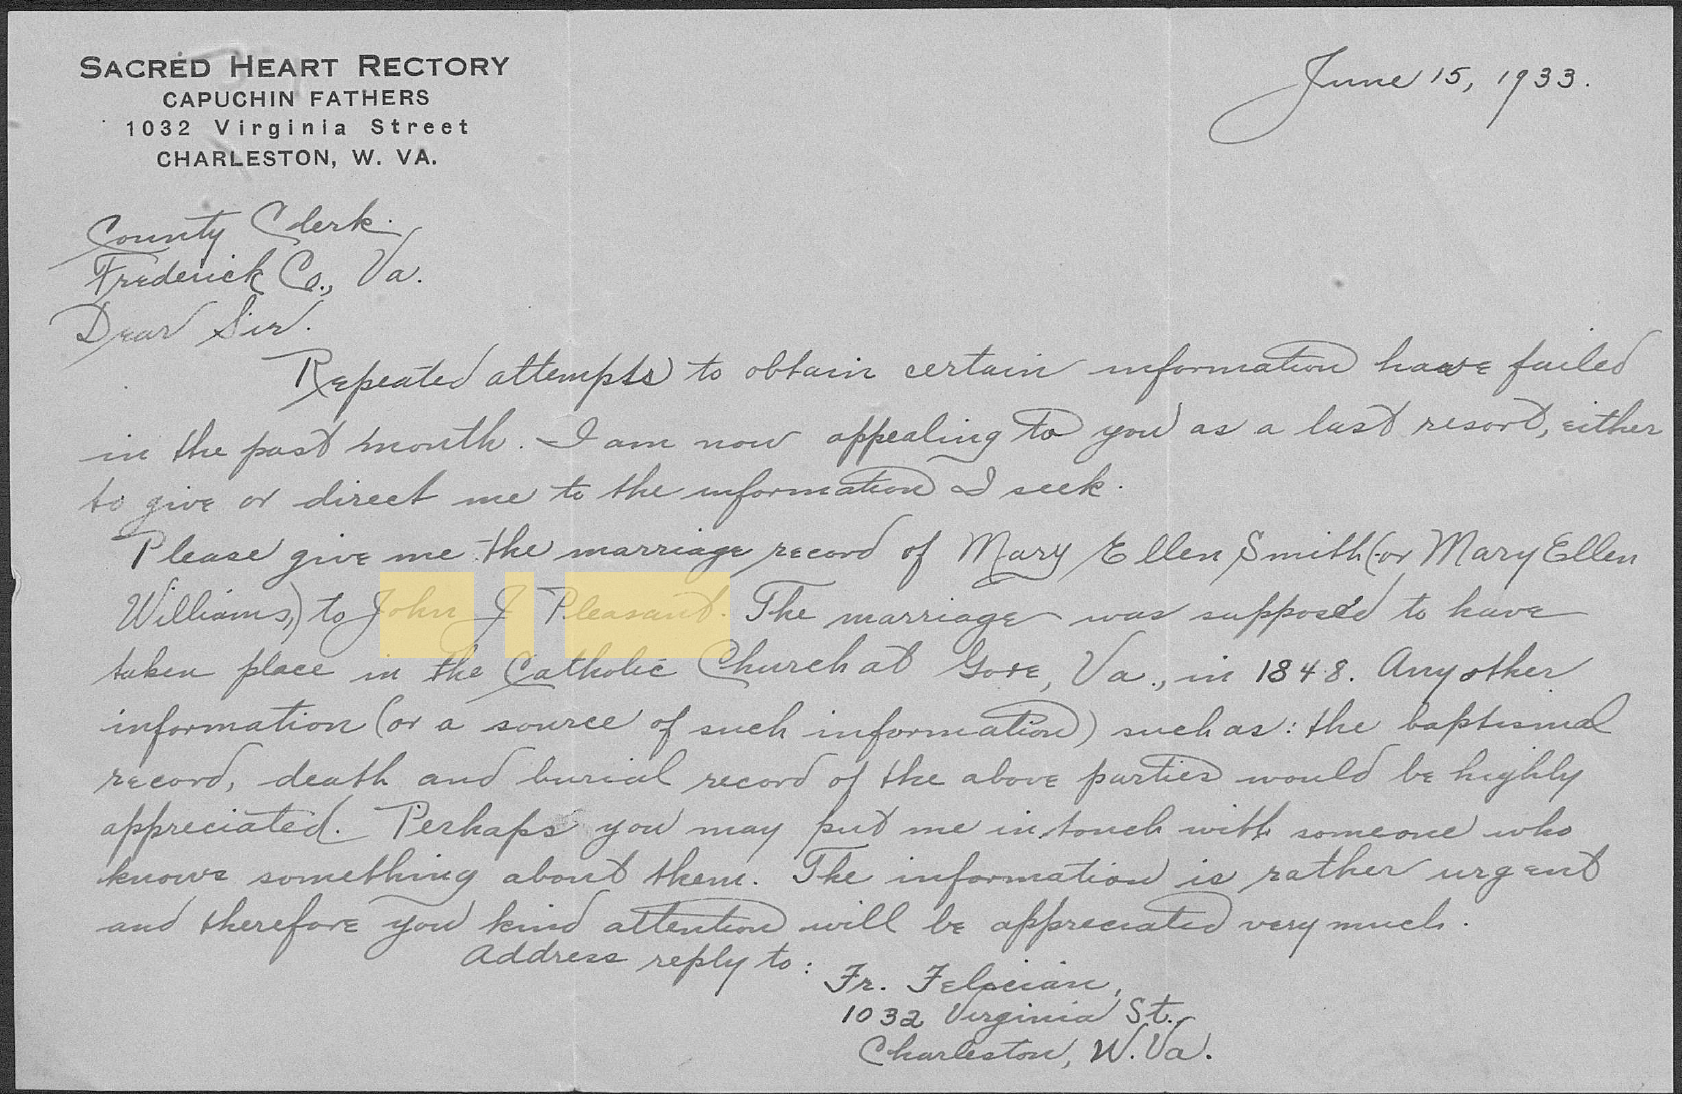 SACRED HEART RECTORY
CAPUCHIN FATHERS
1032 Virginia Street
CHARLESTON, W. VA.
June 15, 1933.
County Clerk
Frederick Co., Va.
Dear Sir.
Repeated attempts to obtain certain information have failed
in the past month. I am now appealing to you as a last resort, either
to give or direct me to the information I seek.
Please give me the marriage record of Mary Ellen Smith (or Mary Ellen
Williams,) to John J Pleasant. The marriage was supposed to have
taken place in the Catholic Church at Gore, Va., in 1848. Any other
information (or a source of such information) such as: the baptismal
record, death and burial record of the above parties would be highly
appreciated. Perhaps you may put me in touch with someone who
knows something about them. The information is rather urgent
and therefore you kind attention will be appreciated very much.
Address reply to:
Fr. Felician,
1032 Virginia St.
Charleston, W. Va.